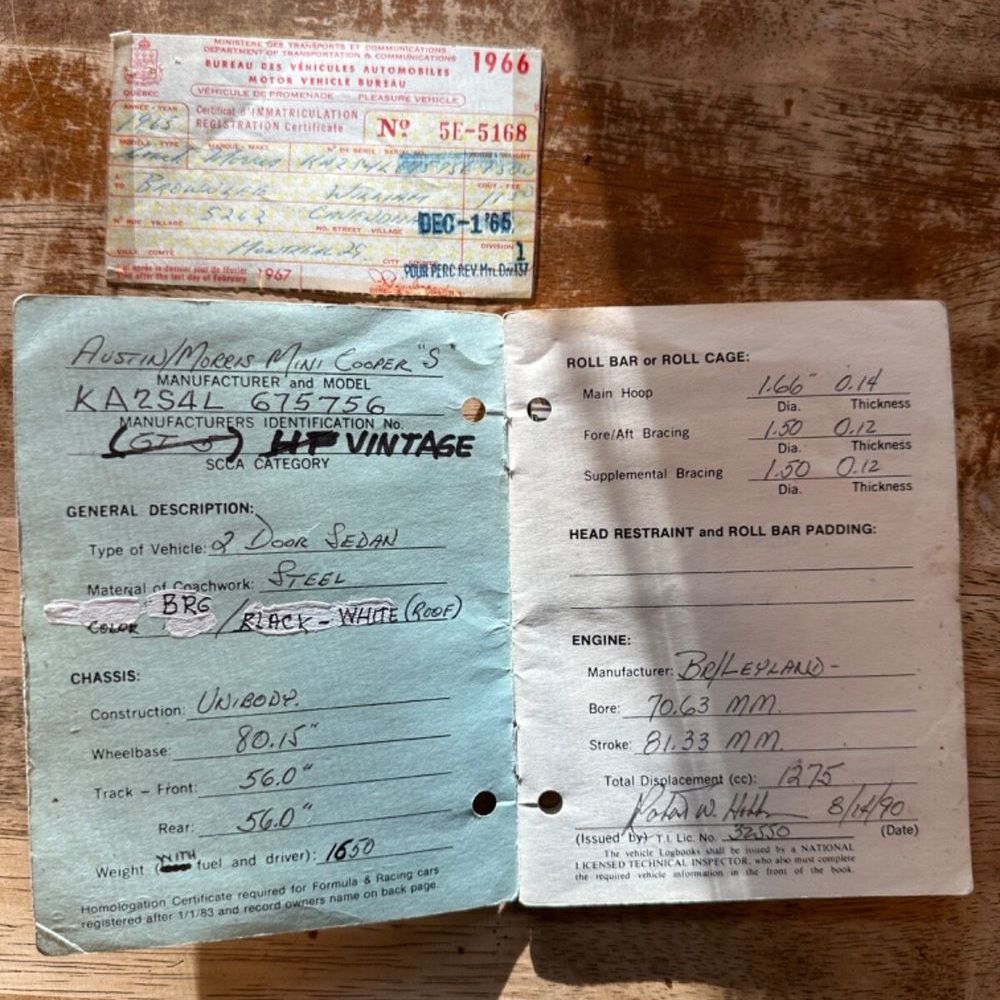 MINISTÈRE DES TRANSPORTS ET COMMUNICATIONS
DEPARTMENT OF TRANSPORTATION & COMMUNICATIONS
1966
BUREAU DES VÉHICULES AUTOMOBILES
MOTOR VEHICLE BUREAU
QUÉBEC
VÉHICULE DE PROMENADE PLEASURE VEHICLE
ANNÉE - YEAR
1965
Certificat d'IMMATRICULATION
REGISTRATION Certificate
Nº 5E-5168
MODÈLE - TYPE MARQUE - MAKE Nº DE SÉRIE - SERIAL NO.
Morris KA2S4L
BROWNLEE WILLIAM
5262
DEC -1 '65
Nº RUE VILLAGE NO. STREET VILLAGE
DIVISION
1
MONTREAL 29
VILLE COMTÉ CITY
POUR PERC. REV. MTL DIV 137
1967
after the last day of February
AUSTIN/MORRIS MINI COOPER "S"
MANUFACTURER and MODEL
KA2S4L 675756
MANUFACTURERS IDENTIFICATION No.
VINTAGE
SCCA CATEGORY
GENERAL DESCRIPTION:
Type of Vehicle: 2 DOOR SEDAN
Material of Coachwork: STEEL
COLOR BRG / BLACK - WHITE (ROOF)
CHASSIS:
Construction: UNIBODY.
Wheelbase: 80.15"
Track – Front: 56.0"
Rear: 56.0"
Weight (WITH fuel and driver): 1650
Homologation Certificate required for Formula & Racing cars
registered after 1/1/83 and record owners name on back page.
ROLL BAR or ROLL CAGE:
Main Hoop 1.66" 0.14
Dia. Thickness
Fore/Aft Bracing 1.50 0.12
Dia. Thickness
Supplemental Bracing 1.50 0.12
Dia. Thickness
HEAD RESTRAINT and ROLL BAR PADDING:
ENGINE:
Manufacturer: BR/LEYLAND -
Bore: 70.63 MM.
Stroke: 81.33 MM.
Total Displacement (cc): 1275
Robert W. 8/14/90
(Issued by) T.I. Lic. No. 32550 (Date)
The vehicle Logbooks shall be issued by a NATIONAL
LICENSED TECHNICAL INSPECTOR, who also must complete
the required vehicle information in the front of the book.